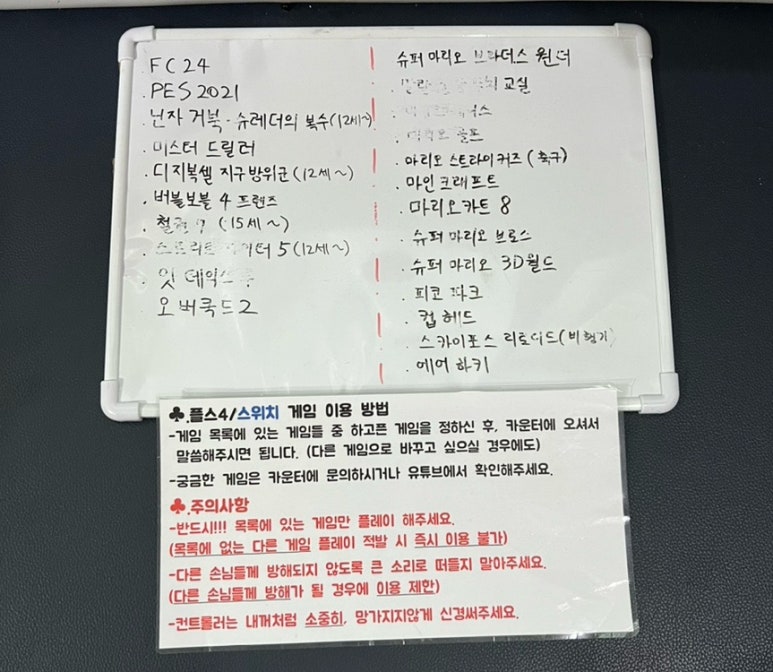 FC24
PES 2021
닌자 거북 - 슈레더의 복수(12세~)
미스터 드릴러
디지복셀 지구방위군(12세~)
버블보블 4 프렌즈
철권7 (15세~)
스트리트 파이터 5(12세~)
잇 테익스 투
오버쿡드2
슈퍼 마리오 브라더스 원더
교실
마리오 골프
마리오 스트라이커즈(축구)
마인크래프트
마리오카트 8
슈퍼 마리오 브로스
슈퍼 마리오 3D월드
피코 파크
컵 헤드
스카이포스 리로디드(비행기)
에어 하키
♣.플스4/스위치 게임 이용 방법
-게임 목록에 있는 게임들 중 하고픈 게임을 정하신 후, 카운터에 오셔서
말씀해주시면 됩니다. (다른 게임으로 바꾸고 싶으실 경우에도)
-궁금한 게임은 카운터에 문의하시거나 유튜브에서 확인해주세요.
♣.주의사항
-반드시!!! 목록에 있는 게임만 플레이 해주세요.
(목록에 없는 다른 게임 플레이 적발 시 즉시 이용 불가)
-다른 손님들께 방해되지 않도록 큰 소리로 떠들지 말아주세요.
(다른 손님들께 방해가 될 경우에 이용 제한)
-컨트롤러는 내꺼처럼 소중히, 망가지지않게 신경써주세요.